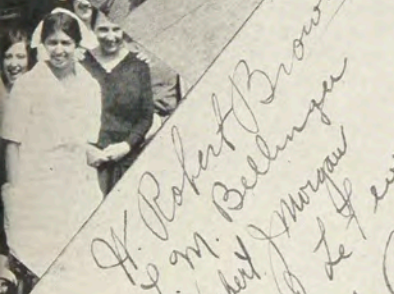 H. Robert Brow
M. Bellinger
bert J Morgan
Le Few